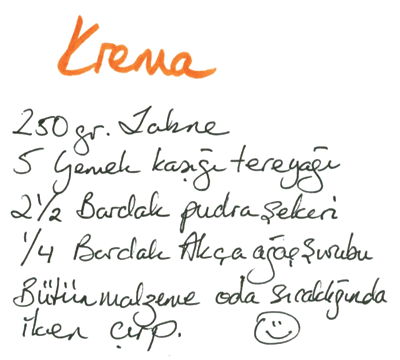 Krema
250 gr. Labne
5 Yemek kaşığı tereyağı
2 1/2 Bardak pudra şekeri
1/4 Bardak Akça ağaç Şurubu
Bütün malzeme oda sıcaklığında
iken çırp.